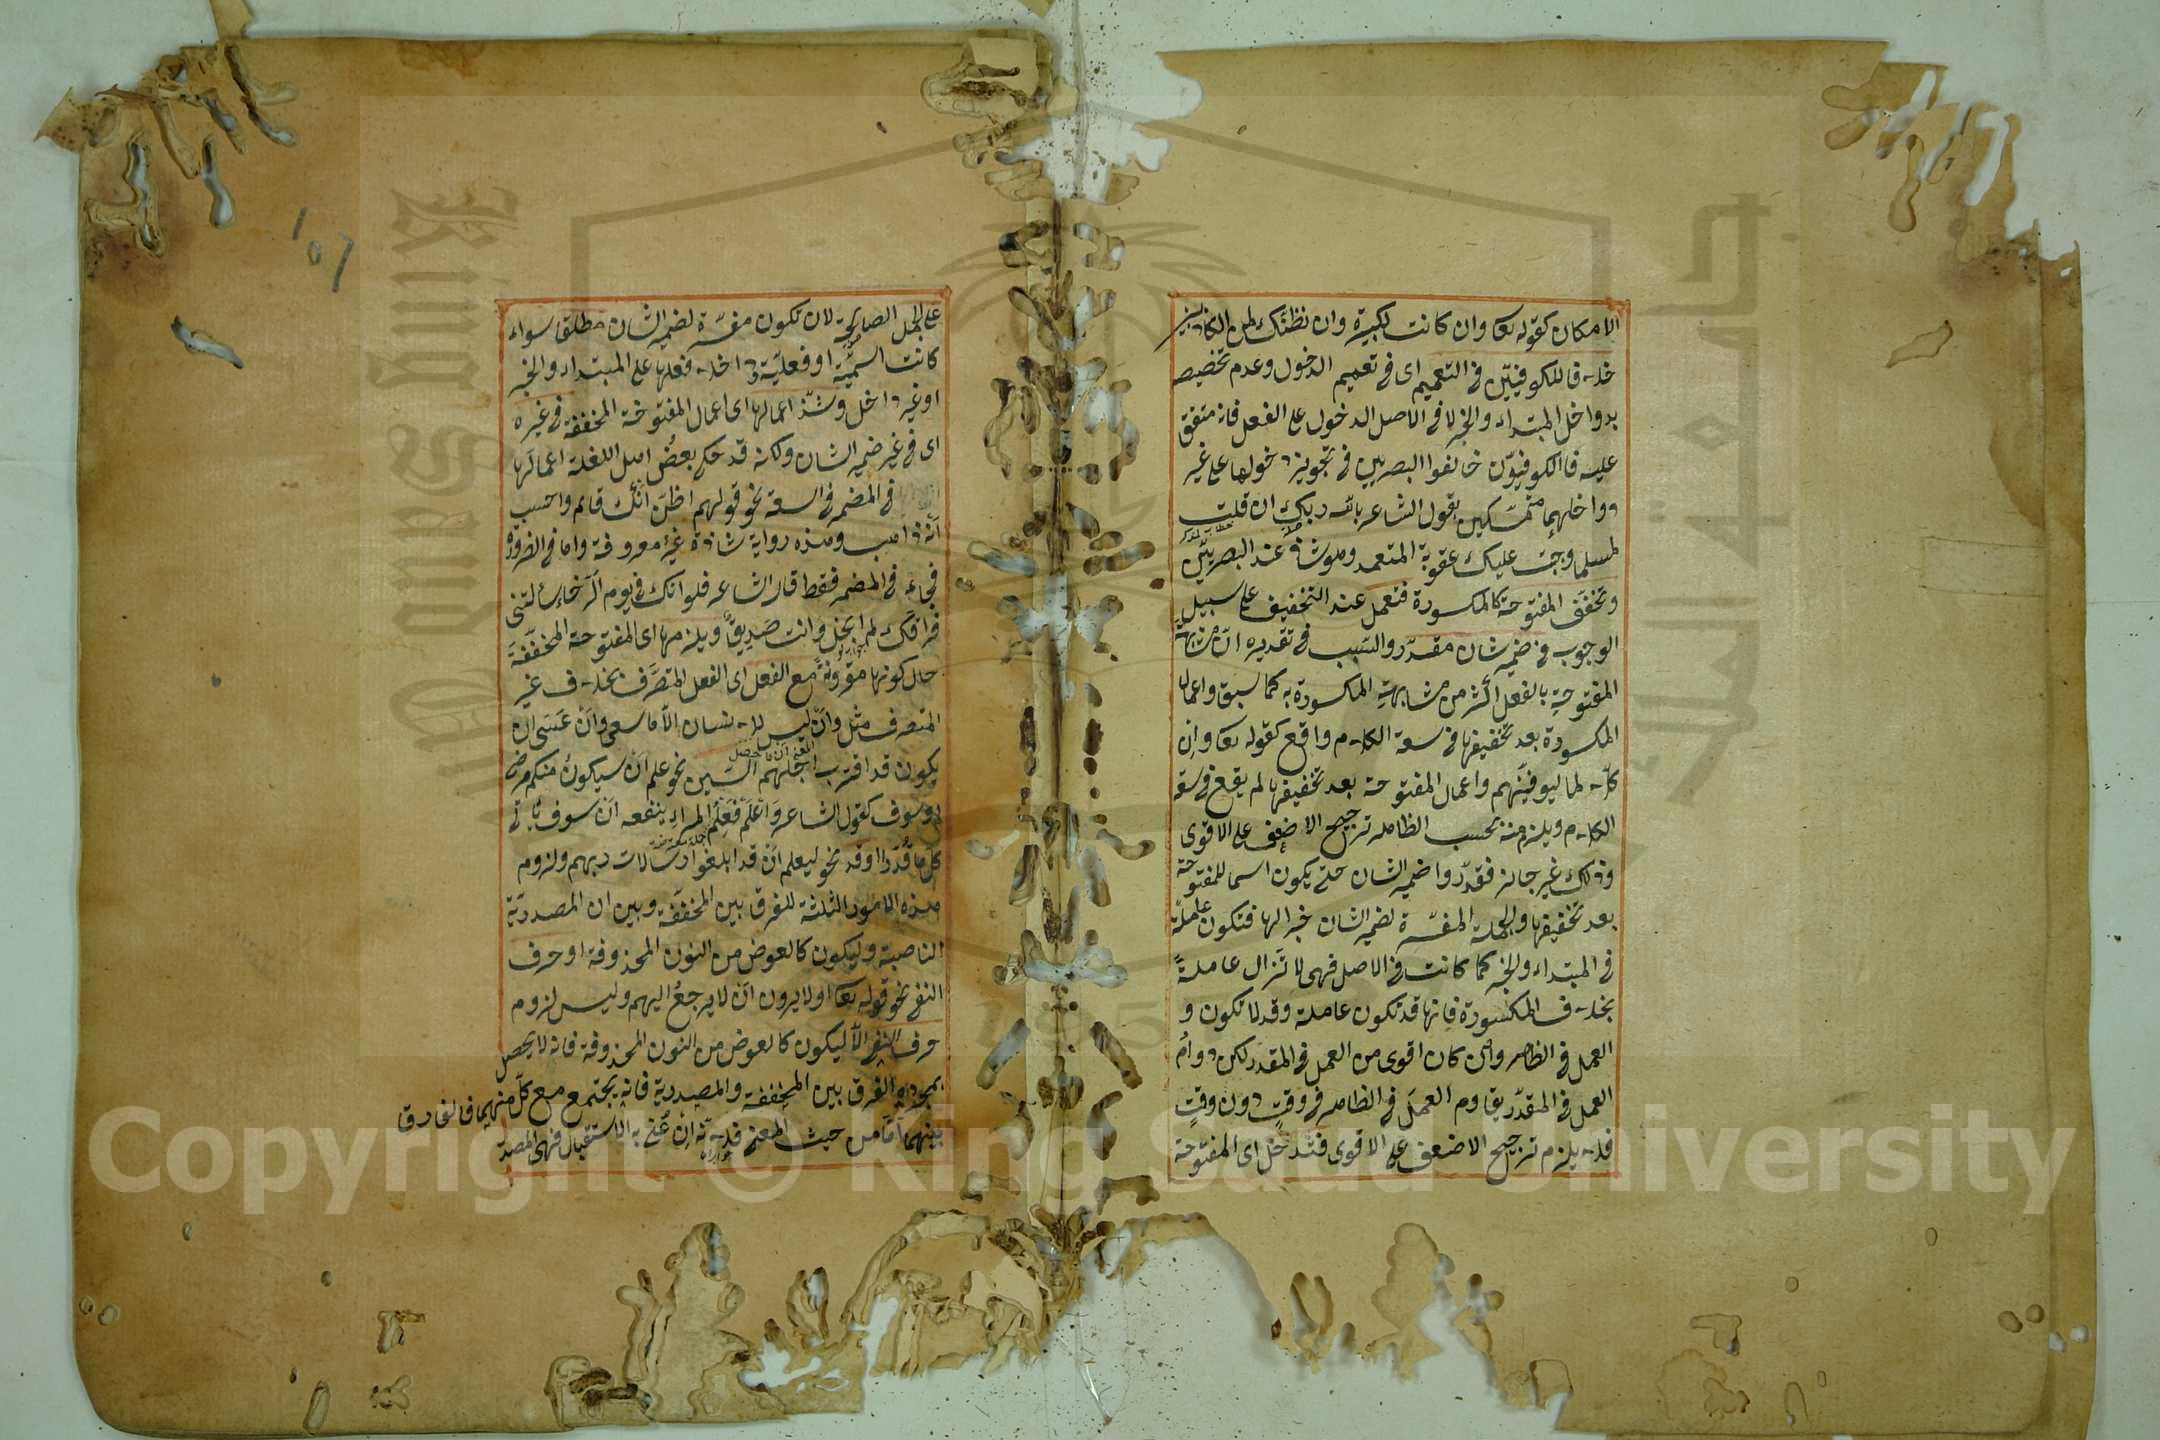 الامكان كقوله تعا وان كانت لكبيرة وان نظنك لمن الكاذبين
خلافا للكوفيين في التعميم اى في تعميم الدخول وعدم تخصيصه
بدواخل المبتداء والخبر لا في الاصل الدخول على الفعل فانه متفق
عليه فالكوفيون خالفوا البصريين في تجويز دخولها على غير
دواخلهما متمسكين بقول الشاعر بالله ربك ان قلت
لمسلما وجبت عليك عقوبة المتعمد وهو شاذ عند البصريين
وتخفف المفتوحة كالمكسورة فتعمل عند التخفيف على سبيل
الوجوب في ضمير شان مقدر والسبب في تقديره ان مشابهة
المفتوحة بالفعل اكثر من مشابهة المكسورة به كما سبق واعمال
المكسورة بعد تخفيفها في سعة الكلام واقع كقوله تعا وان
كلا لما ليوفينهم واعمال المفتوحة بعد تخفيفها لم يقع في سعة
الكلام ويلزم منه بحسب الظاهر ترجيح الاضعف على الاقوى
وذلك غير جائز فقدروا ضمير الشان حتى يكون اسما للمفتوحة
بعد تخفيفها والجملة المفسرة لضمير الشان خبرا لها فتكون عاملة
في المبتداء والخبر كما كانت في الاصل فهى لا تزال عاملة
بخلاف المكسورة فانها قد تكون عاملة وقد لا تكون و
العمل في الظاهر وان كان اقوى من العمل في المقدر لكن دوام
العمل في المقدر يقاوم العمل في الظاهر في وقت دون وقت
فلا يلزم ترجيح الاضعف على الاقوى فتدخل اى المفتوحة
107
على الجمل الصالحة لان تكون مفسرة لضمير الشان مطلقا سواء
كانت اسمية او فعلية داخلا فعلها على المبتداء والخبر
او غير داخل وشذ اعمالها اى اعمال المفتوحة المخففة في غيره
اى في غير ضمير الشان وكانه قد حكى بعض اهل اللغة اعمالها
في المضمر في السعة نحو قولهم اظن انك قائم واحسب
انه ذاهب وهذه رواية شاذة غير معروفة واما في الضرورة
فجاء في المضمر فقط قال الشاعر فلو انك في يوم الرخاء سألتنى
فراقك لم ابخل وانت صديق ويلزمها اى المفتوحة المخففة
حال كونها مقرونة مع الفعل اى الفعل المتصرف بخلاف غير
المتصرف مثل وان ليس للانسان الا ما سعى وان عسى ان
يكون قد اقترب اجلهم السين نحو علم ان سيكون منكم مرضى
او سوف كقول الشاعر واعلم فعلم المرء ينفعه ان سوف ياتى
كل ما قدرا او قد نحو ليعلم ان قد ابلغوا رسالات ربهم ولزوم
هذه الامور الثلثة للفرق بين المخففة وبين ان المصدرية
الناصبة وليكون كالعوض من النون المحذوفة او حرف
النفى نحو قوله تعا اولا يرون ان لا يرجع اليهم وليس لزوم
حرف النفى الا ليكون كالعوض من النون المحذوفة فانه لا يحصل
بمجرده الفرق بين المخففة والمصدرية فانه يجتمع مع كل منهما فالفارق
بينهما اما من حيث المعنى فلانه ان عنى به الاستقبال فهى المصدرية
King Saud University
1957
Copyright © King Saud University